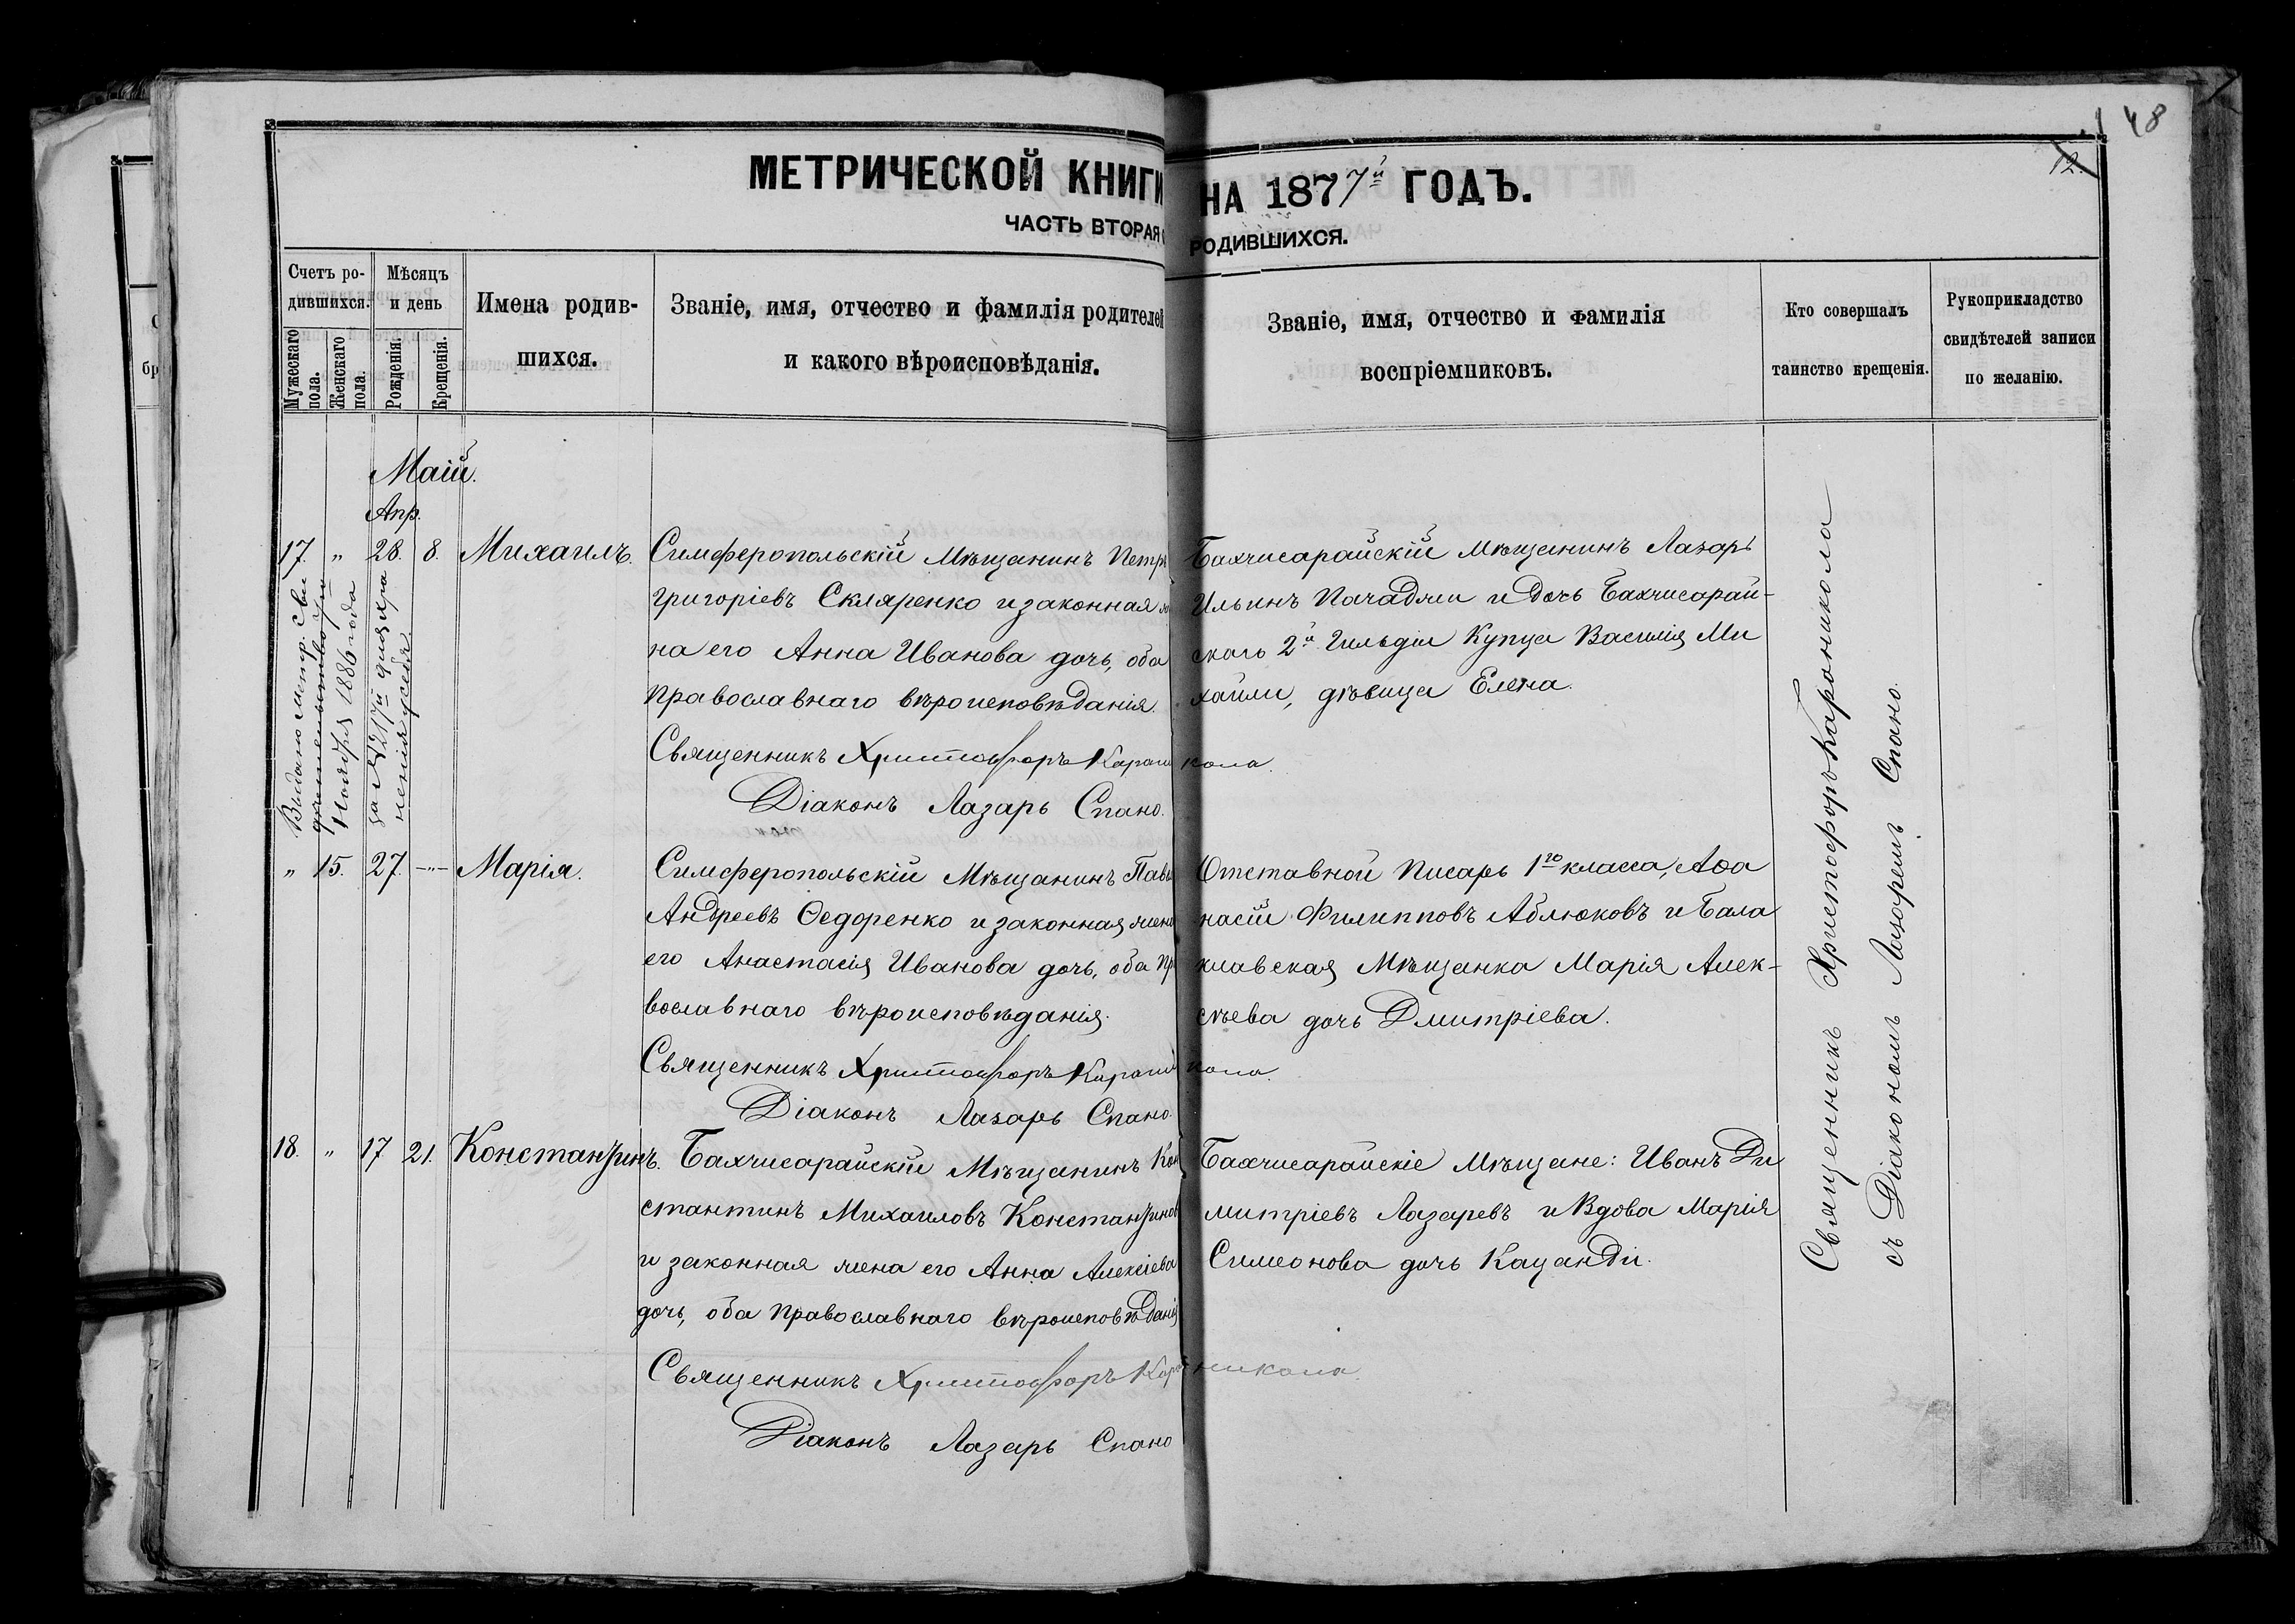 48
12.
МЕТРИЧЕСКОЙ КНИГИ НА 1877й ГОДЪ.
ЧАСТЬ ВТОРАЯ РОДИВШИХСЯ.
Счетъ ро-
дившихся.
Мужескаго
пола.
Женскаго
пола.
Мѣсяцъ
и день
Рожденія.
Крещенія.
Имена родив-
шихся.
Званіе, имя, отчество и фамилія родителей
и какого вѣроисповѣданія.
Званіе, имя, отчество и фамилія
воспріемниковъ.
Кто совершалъ
таинство крещенія.
Рукоприкладство
свидѣтелей записи
по желанію.
Маій.
Апр.
17. " 28. 8. Михаилъ.
Симферопольскій Мѣщанинъ Петръ
Григоріевъ Скляренко и законная
на его Анна Иванова дочь, оба
Православнаго вѣроисповѣданія.
Священникъ Христофоръ Карони
кола.
Діаконъ Лазарь Спано.
Бахчисарайскій Мѣщанинъ Лазарь
Ильинъ Пачаджи и дочь Бахчисарай-
скаго 2й Гильдіи Купца Василія Ми
хайли, дѣвица Елена.
Выдано метр. сви
дѣтельство
Ноября 1886 года
за № 217й
" 15. 27. -"- Марія.
Симферопольскій Мѣщанинъ Паве
Андреевъ Ѳедоренко и законная жена
его Анастасія Иванова дочь, оба Пр
вославнаго вѣроисповѣданія.
Священникъ Христофоръ Карони
кола.
Діаконъ Лазарь Спано.
Отставной Писарь 1го класса, Аѳа
насій Филипповъ Аблюковъ и Бала
клавская Мѣщанка Марія Алек-
сѣева дочь Дмитріева.
18. " 17 21. Константинъ.
Бахчисарайскій Мѣщанинъ Кон
стантинъ Михаиловъ Константинов
и законная жена его Анна Алексіева
дочь, оба Православнаго вѣроисповѣданія
Священникъ Христофоръ Каро
никола.
Діаконъ Лазарь Спано
Бахчисарайскіе Мѣщане: Иванъ Ди
митріевъ Лазаревъ и Вдова Марія
Симеонова дочь Кацанди.
Священникъ Христофоръ Кароникола
съ Діакономъ Лазаремъ Спано.